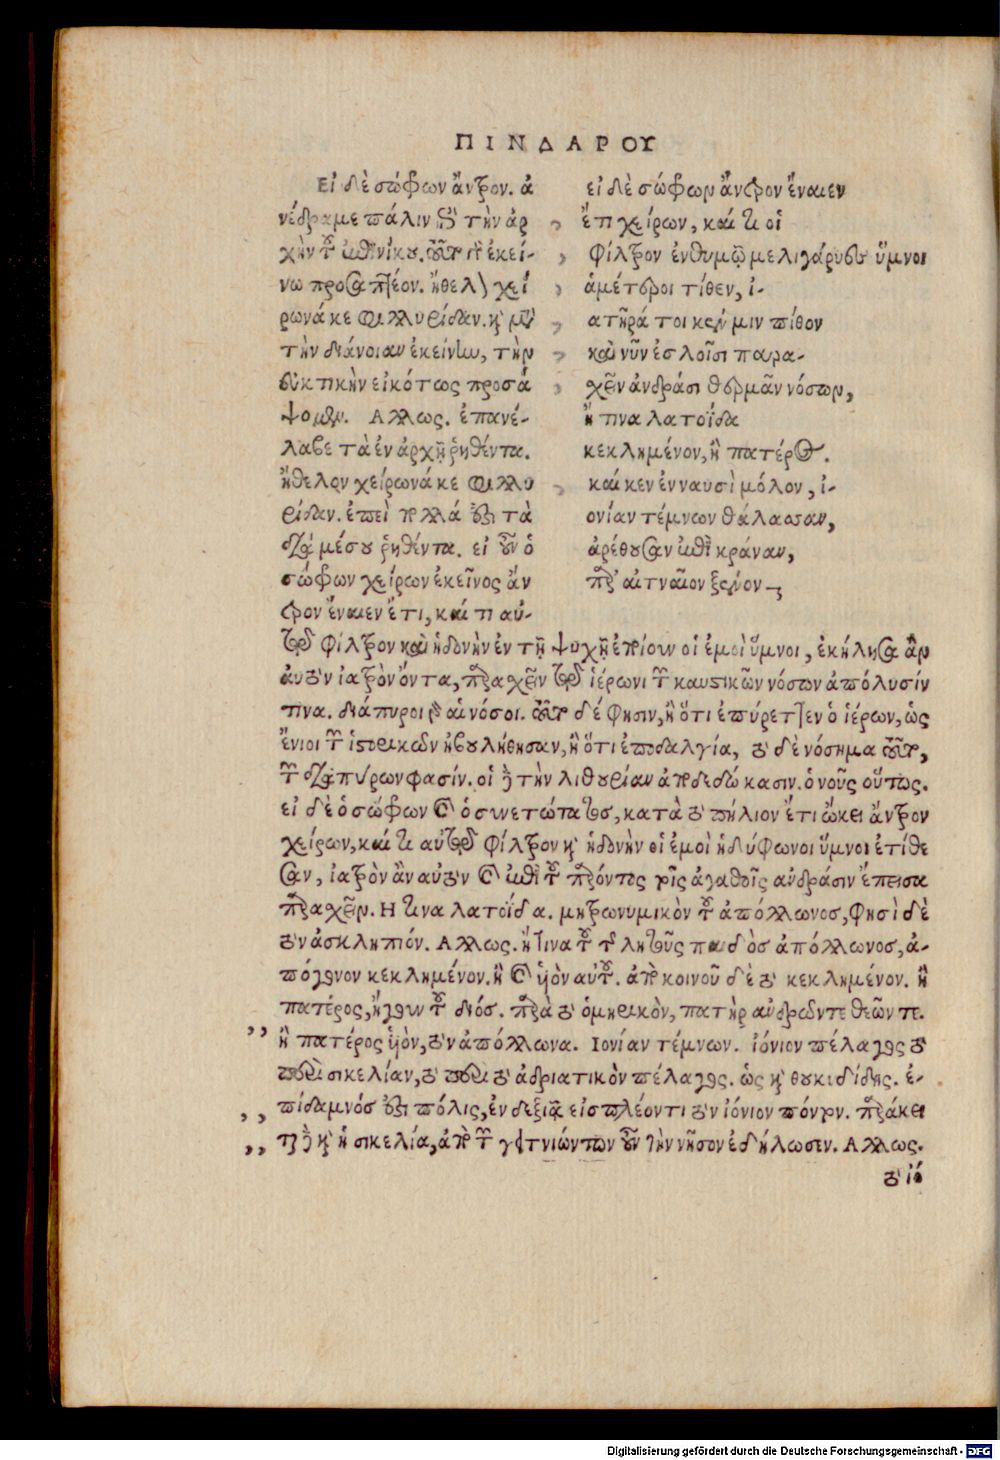 ΠΙΝΔΑΡΟΥ
Εἰ δὲ σώφρων ἄντρον. ἀ
νέδραμε πάλιν ἐπὶ τὴν ἀρ
χὴν τοῦ ἐπινίκου. τοῦτο γὰρ ἐκεί-
νω προσαπτέον. ἤθελον χεί
ρωνά κε φιλλυρίδαν. καὶ μετὰ
τὴν διάνοιαν ἐκείνην, τὴν
εὐκτικὴν εἰκότως προσά
ψομεν. Αλλως. ἐπανέ-
λαβε τὰ ἐν ἀρχῇ ῥηθέντα.
ἤθελον χείρωνά κε φιλλυ
ρίδαν. ἐπεὶ πολλά ἐστι τὰ
διὰ μέσου ῥηθέντα. εἰ οὖν ὁ
σώφρων χείρων ἐκεῖνος ἄν
τρον ἔναιεν ἔτι, καί τι αὐ-
εἰ δὲ σώφρων ἄντρον ἔναιεν
ἔτι χείρων, καί τι οἱ
φίλτρον ἐν θυμῷ μελιγάρυες ὕμνοι
ἁμέτεροι τίθεν, ἰ-
ατῆρά τοι κεν μιν πίθον
καὶ νῦν ἐσλοῖσι παρα-
χεῖν ἀνδράσι θερμᾶν νόσων,
ἤ τινα λατοΐδα
κεκλημένον, ἢ πατέρος.
καί κεν ἐν ναυσὶ μόλον, ἰ-
ονίαν τέμνων θάλασσαν,
ἀρέθουσαν ἐπὶ κράναν,
παρ' αἰτναῖον ξένον
τῷ φίλτρον καὶ ἡδονὴν ἐν τῇ ψυχῇ ἐποίουν οἱ ἐμοὶ ὕμνοι, ἐκήλησα ἂν
αὐτὸν ἰατρὸν ὄντα, παρασχεῖν τῷ ἱέρωνι τῶν καυστικῶν νόσων ἀπόλυσίν
τινα. διάπυροι γὰρ αἱ νόσοι. τοῦτο δέ φησιν, ἢ ὅτι ἐπύρεττεν ὁ ἱέρων, ὡς
ἔνιοι τῶν ἱστορικῶν ἠβουλήθησαν, ἢ ὅτι ἐποδαλγία, τὸ δὲ νόσημα τοῦτο,
τῶν διαπύρων φασίν. οἱ δὲ τὴν λιθουρίαν ἀποδεδώκασιν. ὁ νοῦς οὕτως.
εἰ δὲ ὁ σώφρων καὶ ὁ συνετώτατος, κατὰ τὸ πήλιον ἔτι ᾤκει ἄντρον
χείρων, καί τι αὐτῷ φίλτρον καὶ ἡδονὴν οἱ ἐμοὶ ἡδύφωνοι ὕμνοι ἐτίθε
σαν, ἰατρὸν ἂν αὐτὸν καὶ ἐπὶ τοῦ παρόντος τοῖς ἀγαθοῖς ἀνδράσιν ἔπεισα
παρασχεῖν. Η τινα λατοΐδα. μητρωνυμικὸν τοῦ ἀπόλλωνος, φησὶ δὲ
τὸν ἀσκληπιόν. Αλλως. ἤ τινα τοῦ τῆς λητοῦς παιδὸς ἀπόλλωνος, ἀ-
πόγονον κεκλημένον. ἢ καὶ υἱὸν αὐτοῦ. ἀπὸ κοινοῦ δὲ τὸ κεκλημένον. ἢ
πατέρος, ἤγουν τοῦ διός. παρὰ τὸ ὁμηρικὸν, πατὴρ ἀνδρῶν τε θεῶν τε.
ἢ πατέρος υἱὸν, τὸν ἀπόλλωνα. Ιονίαν τέμνων. ἰόνιον πέλαγος τὸ
περὶ σικελίαν, τὸ περὶ τὸ ἀδριατικὸν πέλαγος. ὡς καὶ θουκιδίδης. ἐ-
πίδαμνός ἐστι πόλις, ἐν δεξιᾷ εἰσπλέοντι τὸν ἰόνιον πόντον. παράκει
ται δὲ καὶ ἡ σικελία, ἀπὸ τῶν γειτνιώντων οὖν τὴν νῆσον ἐδήλωσεν. Αλλως.
τὸ ἰό
Digitalisierung gefördert durch die Deutsche Forschungsgemeinschaft - DFG